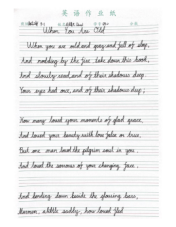 英语作业纸
When You Are Old
When you are old and grey and full of sleep,
And nodding by the fire, take down this book,
And slowly read, and of their shadows deep
Your eyes had once, and of their shadows deep;
How many loved your moments of glad grace,
And loved your beauty with love false or true,
But one man loved the pilgrim soul in you
And loved the sorrows of your changing face.
And bending down beside the glowing bars,
Murmur, a little sadly, how loved fled